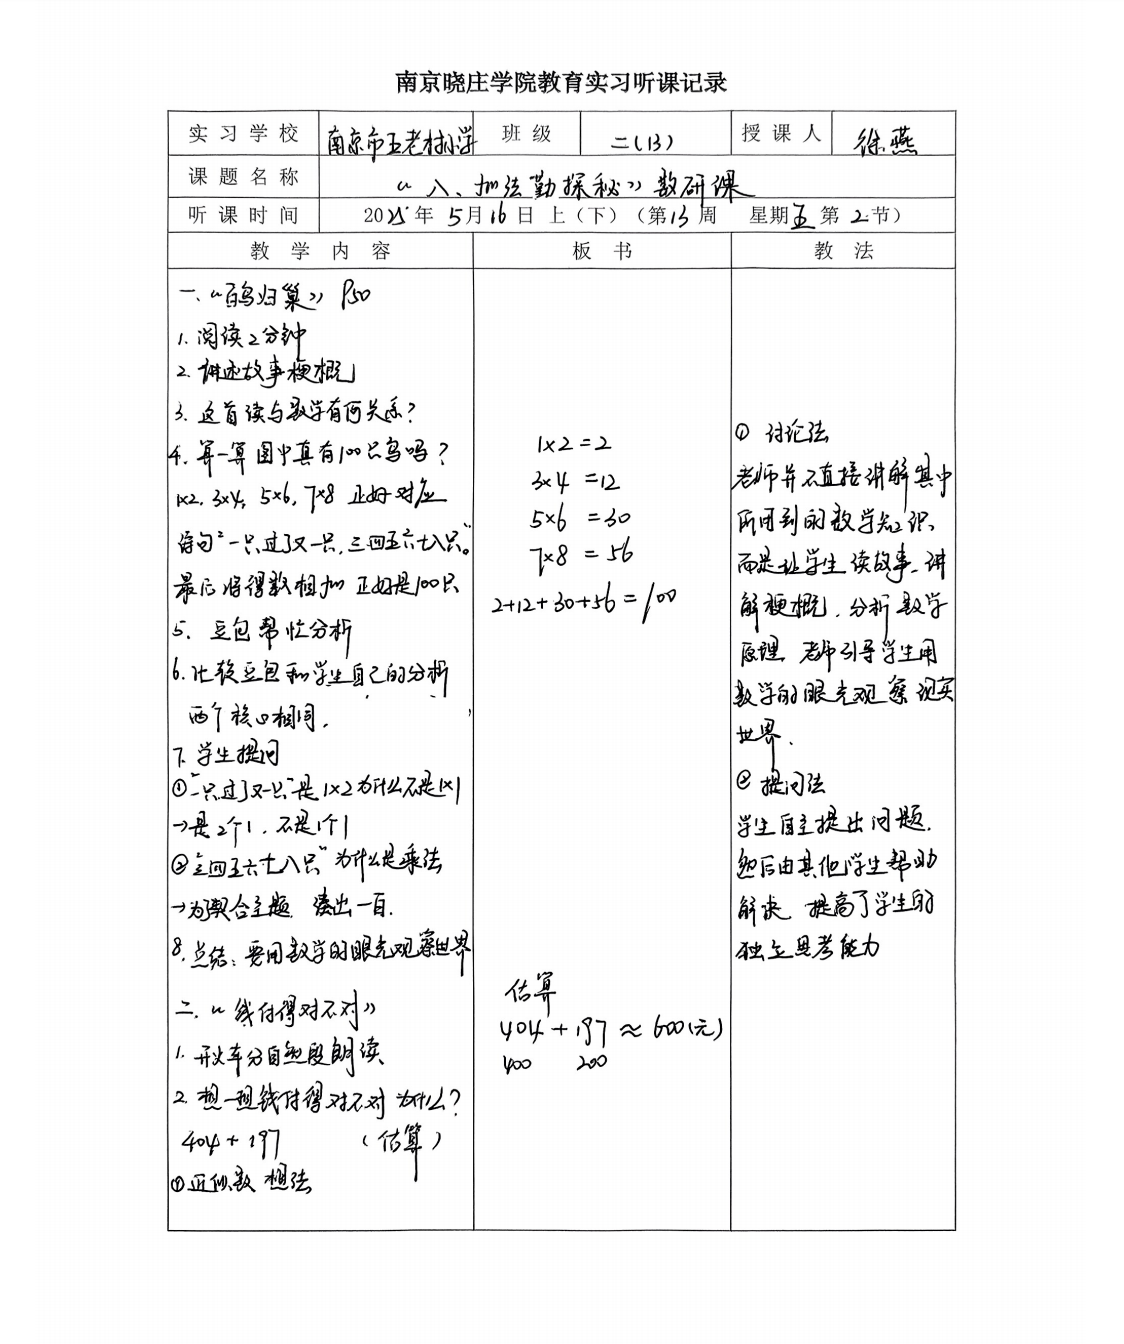 南京晓庄学院教育实习听课记录
实习学校 南京市五老村小学 班级 二(13) 授课人 徐燕
课题名称 《八、加法勤探秘》教研课
听课时间 2025年5月16日上(下)(第13周 星期五第2节)
教学内容 板书 教法
一、《百鸟归巢》 P50
1. 阅读2分钟
2. 讲述故事梗概
3. 这首读与数学有何关系?
4. 算一算图中真有100只鸟吗?
1×2, 3×4, 5×6, 7×8 正好对应
诗句“一只过了又一只,三四五六七八只”。
最后将得数相加 正好是100只
5. 豆包帮忙分析
6. 比较豆包和学生自己的分析
两个核心相同.
7. 学生提问
①“一只过了又一只”是1×2为什么不是1×1
→是2个1,不是1个1
②“三四五六七八只”为什么是乘法
→为契合主题 凑出一百.
8. 总结:要用数学的眼光观察世界
二.《钱付得对不对》
1. 开火车分自然段朗读
2. 想一想钱付得对不对 为什么?
404+197 (估算)
①近似数 想法
1×2=2
3×4=12
5×6=30
7×8=56
2+12+30+56=100
估算
404+197≈600(元)
400 200
① 讨论法
老师并不直接讲解其中
所用到的数学知识,
而是让学生读故事、讲
解梗概,分析数学
原理 老师引导学生用
数学的眼光观察现实
世界.
② 提问法
学生自主提出问题,
然后由其他学生帮助
解决 提高了学生的
独立思考能力